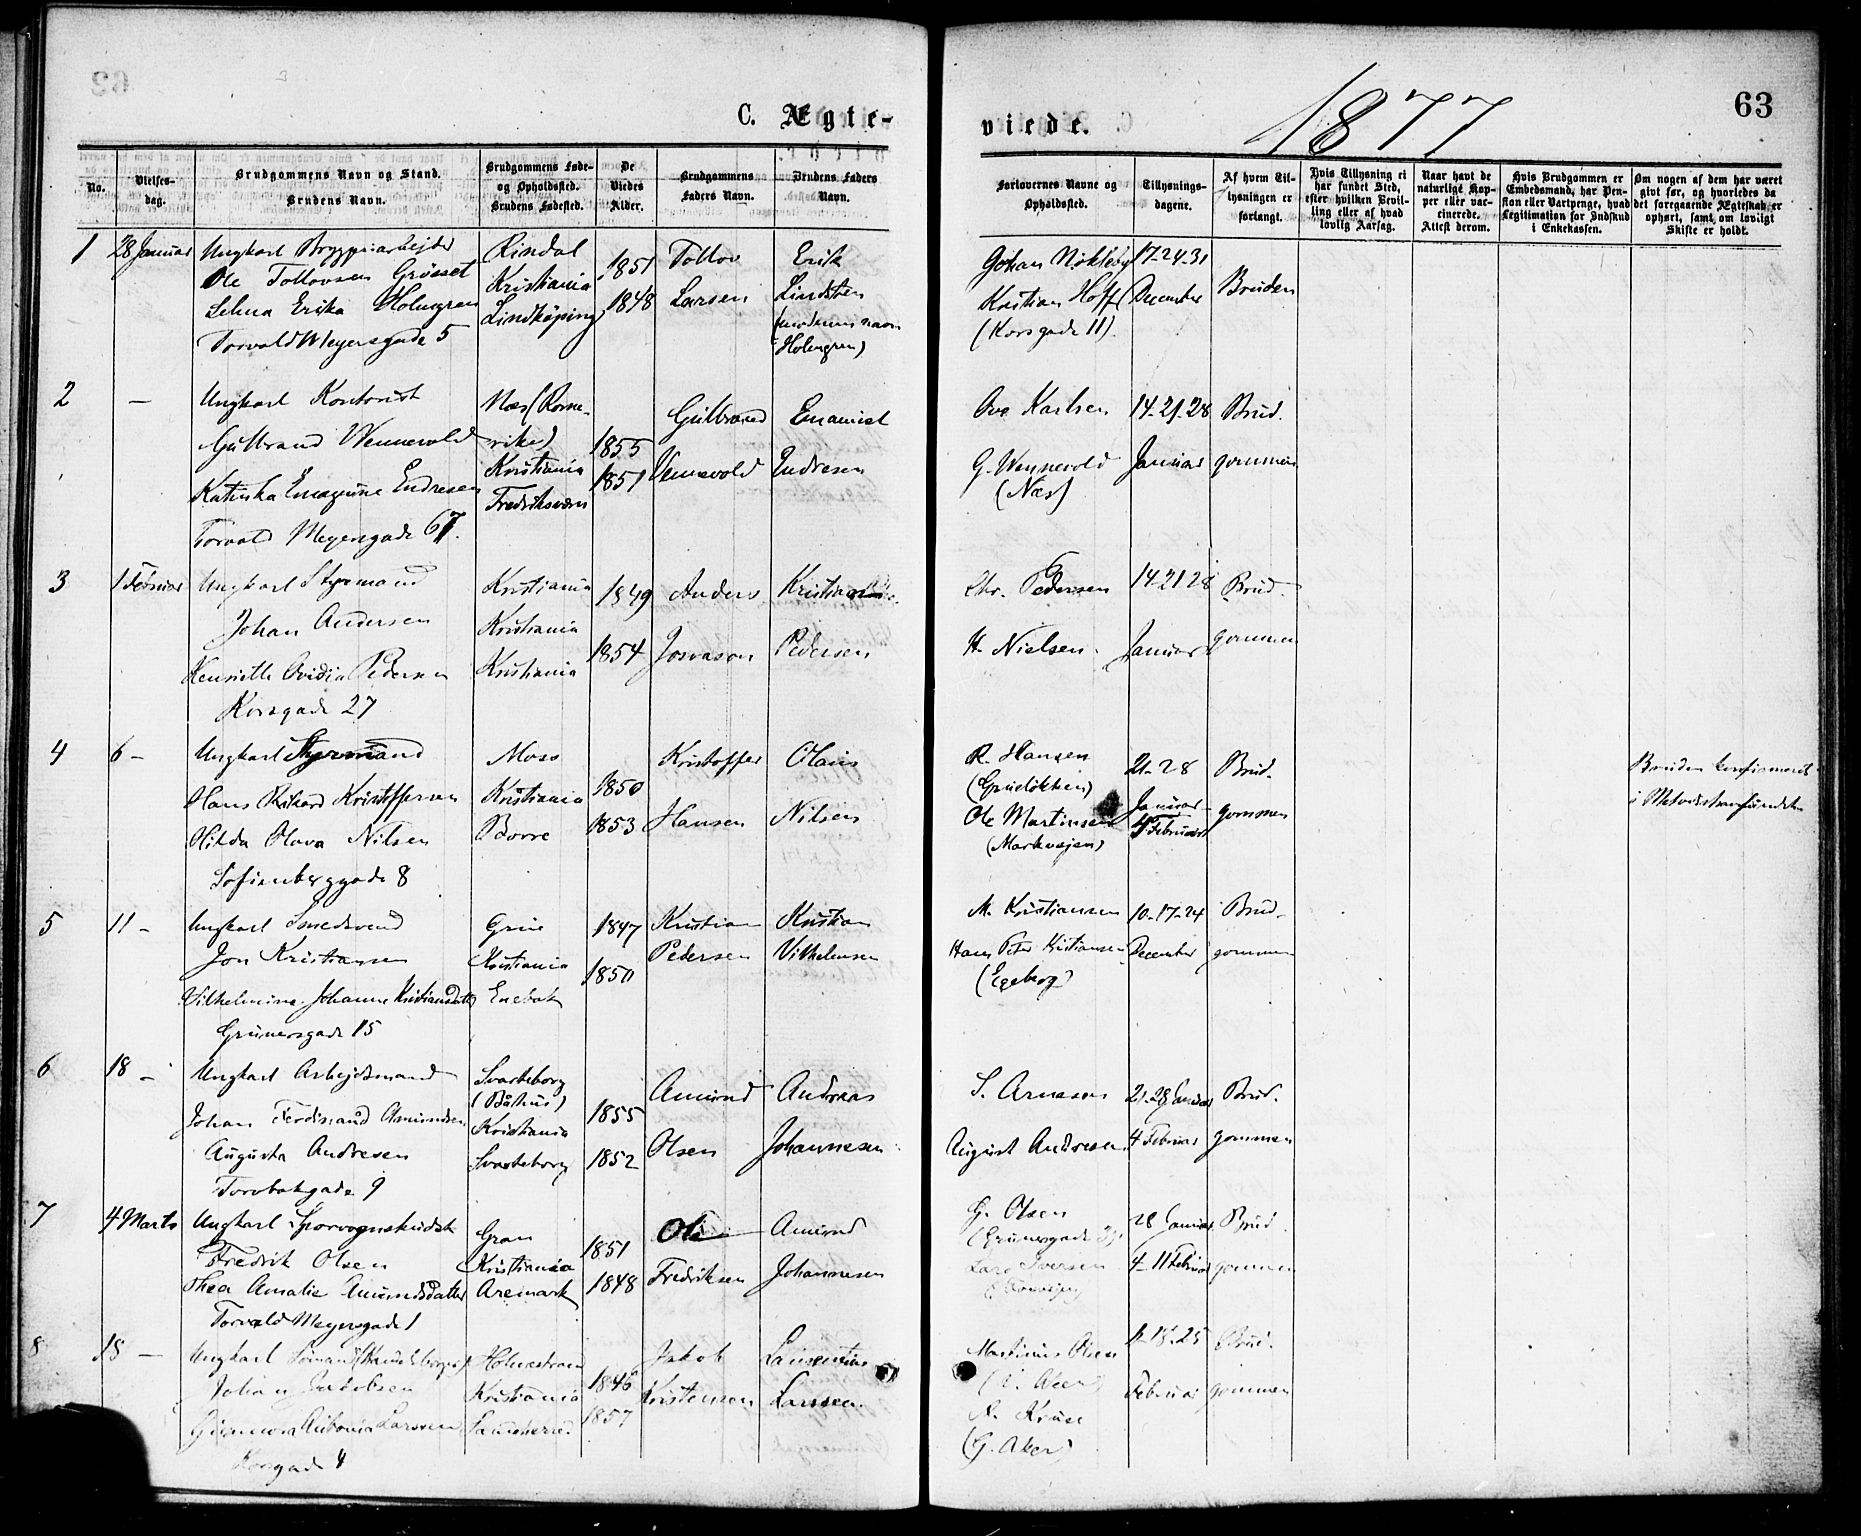 63
C. Ægte-
viede.
1877
No.
Vielses-
dag.
Brudgommens Navn og Stand.
Brudens Navn.
Brudgommens Føde-
og Opholdssted.
Brudens Fødested.
De
Viedes
Alder.
Brudgommens
Faders Navn.
Brudens Faders
Navn.
Forlovernes Navne og
Opholdssted.
Tillysnings-
dagene.
Af hvem Til-
lysningen er
forlangt.
Hvis Tillysning ei
har fundet Sted,
efter hvilken Bevil-
ling eller af hvad
lovlig Aarsag.
Naar havt de
naturlige Kop-
per eller vac-
cinerede.
Attest derom.
Hvis Brudgommen er
Embedsmand, har Pen-
sion eller Vartpenge, hvad
Legitimation for Indskud
i Enkekassen.
Om nogen af dem har været
gift før, og hvorledes da
det foregaaende Ægteskab er
ophørt, samt om lovligt
Skifte er holdt.
1
28 Januar
Ungkarl Bryggeriarbejder
Ole Tollovsen Grösset
Selma Erika Holmgren
Torvald Meyersgade 5
Rindal
Kristiania
Lindköping
1851
1848
Tollov
Larsen
Erik
Lindsten
(moderens navn
Holmgren)
Johan Nökleby
Kristian Hoff
(Korsgade 11)
17-24-31
December
Bruden
2
—
Ungkarl Kontorist
Gulbrand Wennevold
Katinka Emagine Endresen
Torvald Meyersgade 67.
Næs (Rome-
rike)
Kristiania
Fredriksværn
1855
1851
Gulbrand
Vennevold
Emanuel
Endresen
Ove Karlsen
G. Wennevold
(Næs)
14-21-28
Januar
Brud-
gommen
3
1 Februar
Ungkarl Styrmand
Johan Andersen
Henriette Ovidia Pedersen
Korsgade 27
Kristiania
Kristiania
Kristiania
1849
1854
Anders
Josvason
Pedersen
Chr. Pedersen
H. Nielsen
14-21 28
Januar
Brud-
gommen
4
6 —
Ungkarl Styrmand
Hans Rikard Kristoffersen
Hilda Olava Nilsen
Sofienberggade 8
Moss
Kristiania
Borre
1850
1853
Kristoffer
Hansen
Olaus
Nilsen
R. Hansen
(Grünløkken)
Ole Martinsen
(Markvejen)
21-28
Januar
4 Februar
Brud-
gommen
Bruden konfirmeret
i Metodistsamfundet
5
11 —
Ungkarl Smedsvend
Jon Kristiansen
Vilhelmine Johanne Kristiansdatter
Grünersgade 15
Grue
Kristiania
Enebak
1847
1850
Kristian
Pedersen
Kristian
Vilhelmsen
M. Kristiansen
Hans Peter Kristiansen
(Egeberg)
10-17-24
December
Brud-
gommen
6
18 —
Ungkarl Arbejdsmand
Johan Ferdinand Amundsen
Augusta Andresen
Torvbakgade 9
Svarteborg
(Båhus)
Kristiania
Svarteborg
1855
1852
Amund
Olsen
Andreas
Johannesen
S. Arnesen
August Andresen
21-28 Januar
4 Februar
Brud-
gommen
7
4 Marts
Ungkarl Sporvognskudsk
Fredrik Olsen
Thea Amalie Amundsdatter
Torvald Meyersgade 1
Gran
Kristiania
Aremark
1851
1848
Ole
Fredriksen
Amund
Johannesen
G. Olsen
(Grünersgade
Lars Iversen
28 Januar
4-11 Februar
Brud-
gommen
8
18 —
Ungkarl Sömand
Johan Jakobsen
Antonia Larsen
Korsgade 4
Holmestrand
Kristiania
1846
1857
Jakob
Kristensen
Laurentius
Larsen
Martinus Olsen
A. Kruse
(G. Aker)
11-18-25
Februar
Brud-
gommen